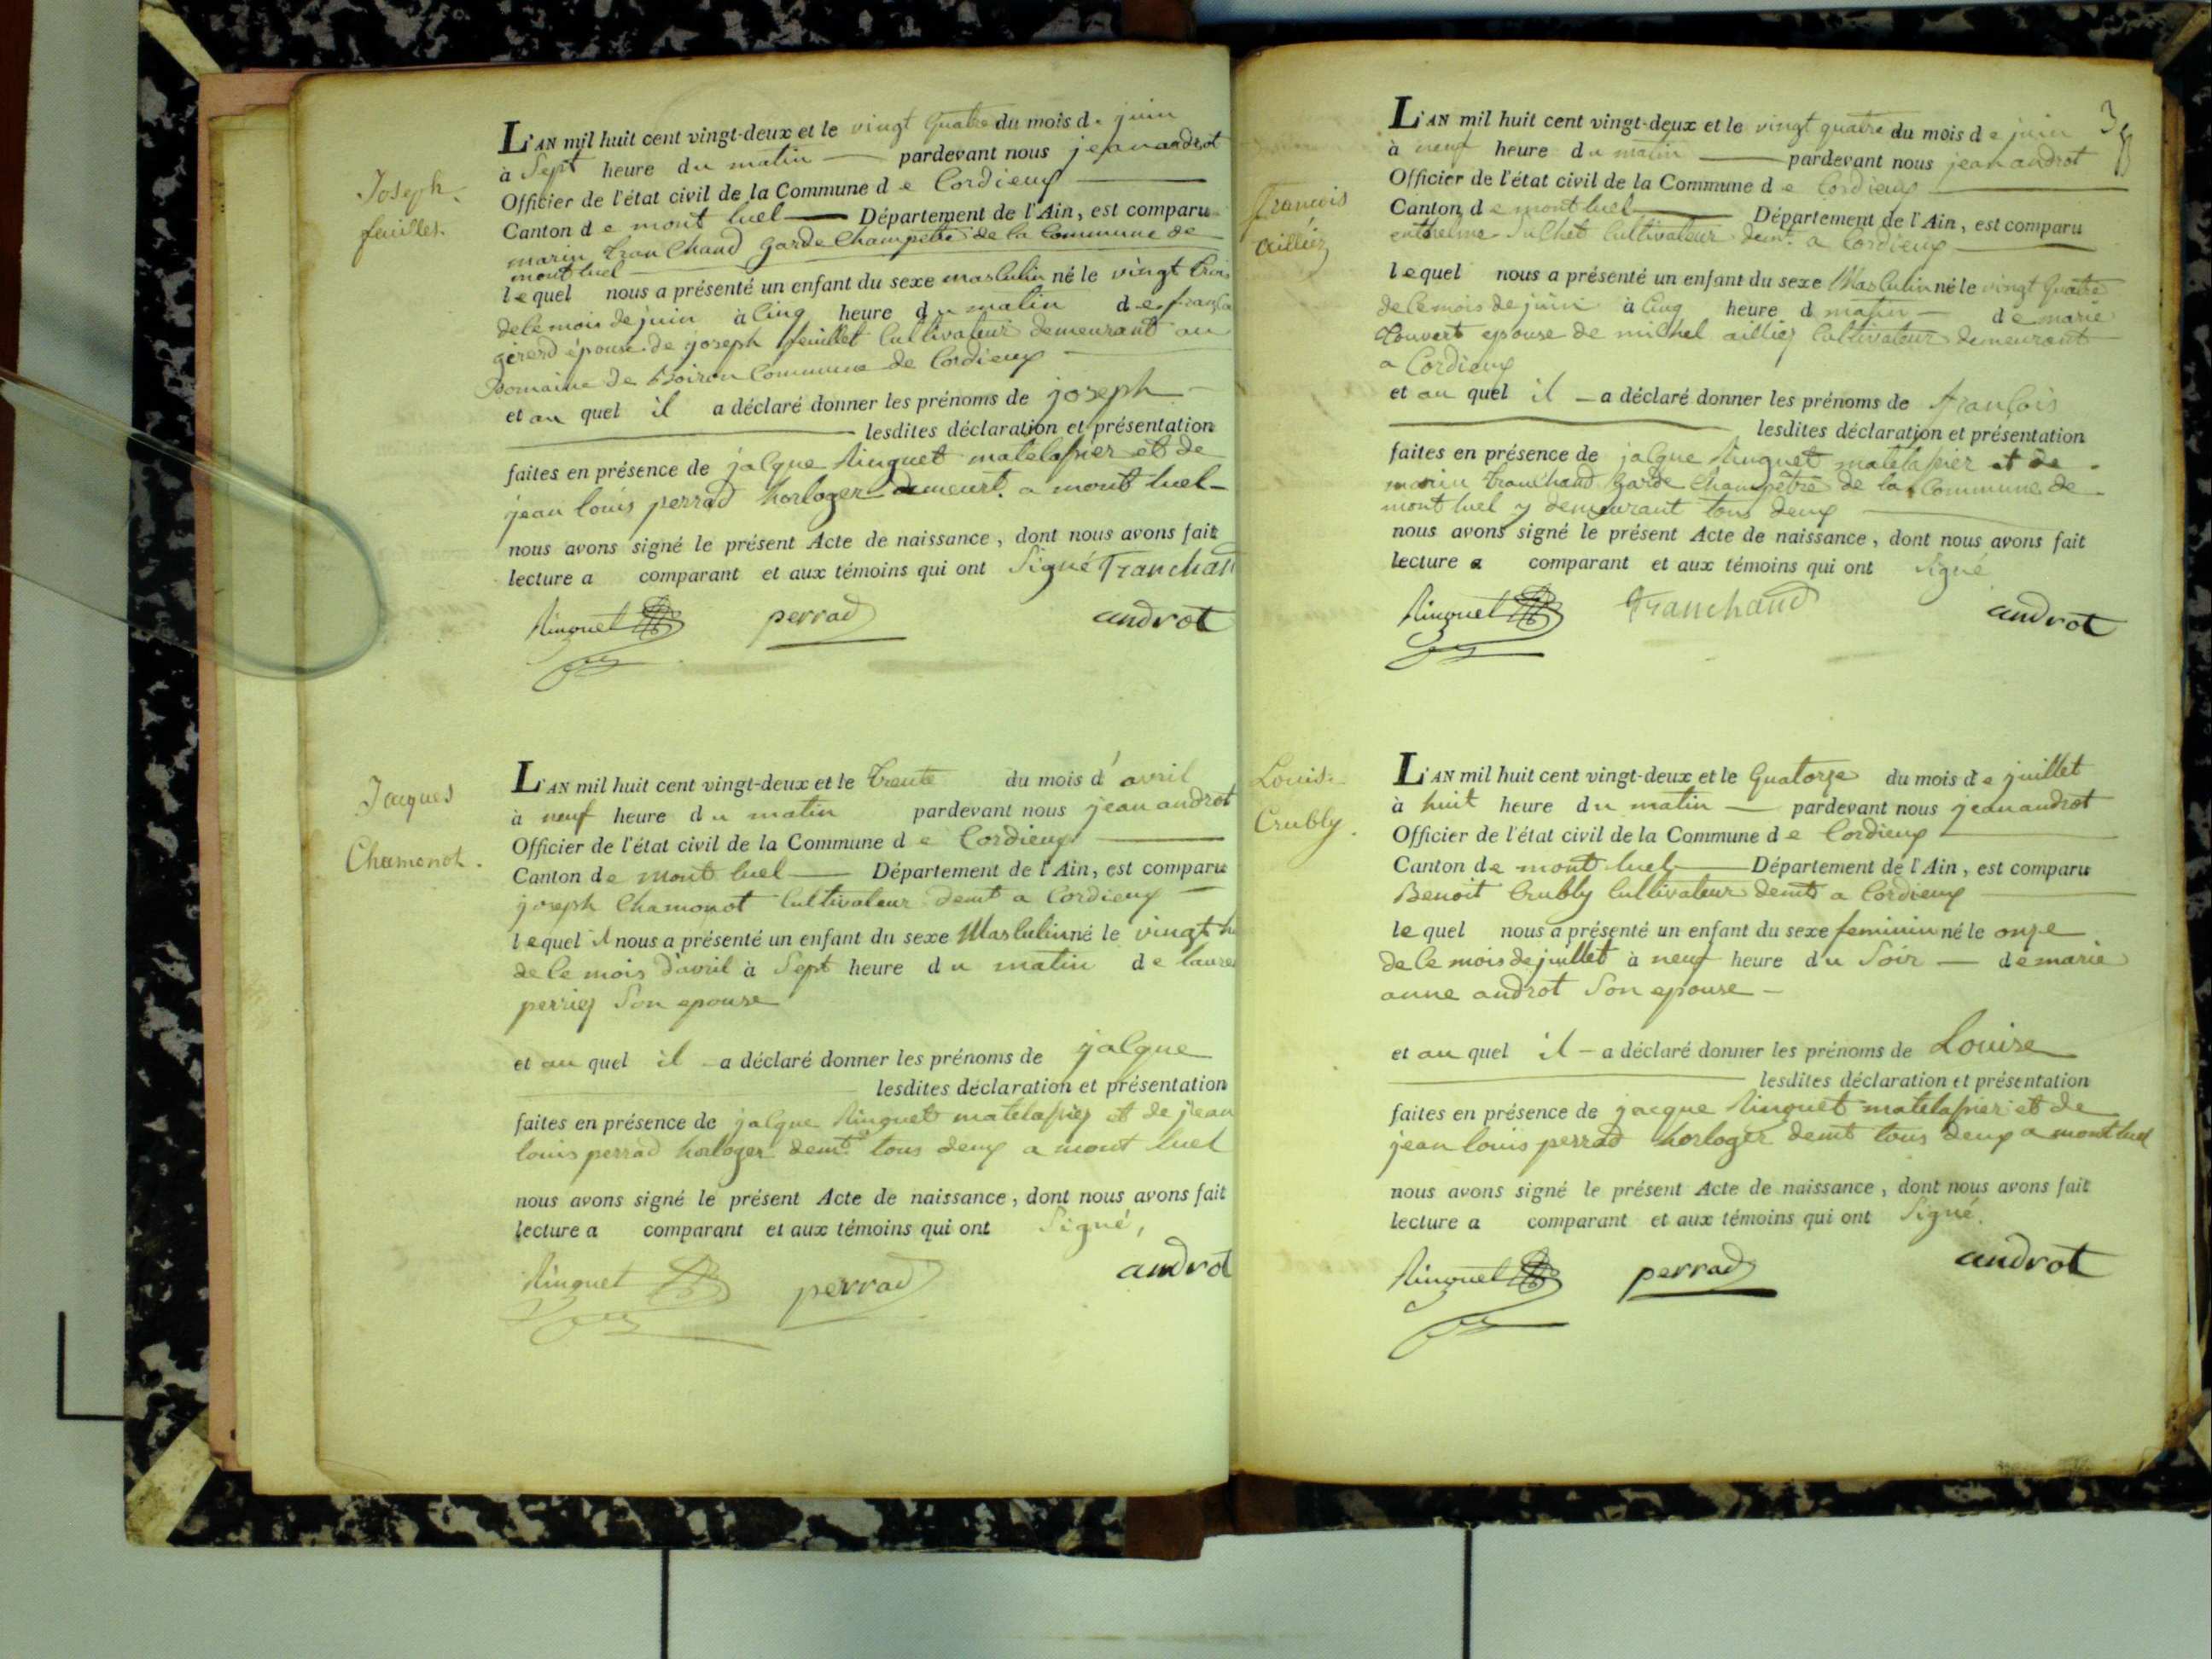 Joseph
feuillet.
L'AN mil huit cent vingt-deux et le vingt quatre du mois de juin
à Sept heure du matin pardevant nous jean androt
Officier de l'état civil de la Commune de Cordieux
Canton de mont luel Département de l'Ain, est comparu
marin tranchand garde champetre de la Commune de
mont luel
lequel nous a présenté un enfant du sexe masculin né le vingt trois
de le mois de juin à cinq heure du matin de
gérerd épouse de joseph feuillet Cultivateur demeurant au
Domaine de Commune de Cordieux
et au quel il a déclaré donner les prénoms de joseph
lesdites déclaration et présentation
faites en présence de jacque Ringuet matelassier et de
jean louis perrad horloger demeurt. a mont luel
nous avons signé le présent Acte de naissance, dont nous avons fait
lecture a comparant et aux témoins qui ont Signé Tranchan
Ringuet perrad androt
Jaques
Chamonot.
L'AN mil huit cent vingt-deux et le trente du mois d'avril
à neuf heure du matin pardevant nous jean androt
Officier de l'état civil de la Commune de Cordieux
Canton de mont luel Département de l'Ain, est comparu
joseph Chamonot Cultivateur demt a Cordieux
lequel il nous a présenté un enfant du sexe Masculin né le vingt h
de le mois d'avril à Sept heure du matin de laure
perrier Son epouse
et au quel il a déclaré donner les prénoms de jacque
lesdites déclaration et présentation
faites en présence de jacque Ringuet matelassier et de jean
louis perrad horloger demt. tous deux a mont luel
nous avons signé le présent Acte de naissance, dont nous avons fait
lecture a comparant et aux témoins qui ont Signé,
Ringuet perrad androt
38
François
aillier
L'AN mil huit cent vingt-deux et le vingt quatre du mois de juin
à neuf heure du matin pardevant nous jean androt
Officier de l'état civil de la Commune de Cordieux
Canton de mont luel Département de l'Ain, est comparu
enthelme Cultivateur demt. a Cordieux
lequel nous a présenté un enfant du sexe Masculin né le vingt quatre
de le mois de juin à cinq heure d matin de marie
Louvert epouse de michel aillier Cultivateur demeurant
a Cordieux
et au quel il a déclaré donner les prénoms de françois
lesdites déclaration et présentation
faites en présence de jacque Ringuet matelassier et de
marin tranchand garde champêtre de la Commune de
mont luel y demeurant tous deux
nous avons signé le présent Acte de naissance, dont nous avons fait
lecture a comparant et aux témoins qui ont Signé
Ringuet Tranchand androt
Louise
Crubly.
L'AN mil huit cent vingt-deux et le Quatorze du mois de juillet
à huit heure du matin pardevant nous jean androt
Officier de l'état civil de la Commune de Cordieux
Canton de mont luel Département de l'Ain, est comparu
Benoit Crubly Cultivateur demt a Cordieux
lequel nous a présenté un enfant du sexe feminin né le onze
de le mois de juillet à neuf heure du Soir de marie
anne androt Son epouse
et au quel il a déclaré donner les prénoms de Louise
lesdites déclaration et présentation
faites en présence de jacque Ringuet matelassier et de
jean louis perrad horloger demt tous deux a mont luel
nous avons signé le présent Acte de naissance, dont nous avons fait
lecture a comparant et aux témoins qui ont Signé.
Ringuet perrad androt